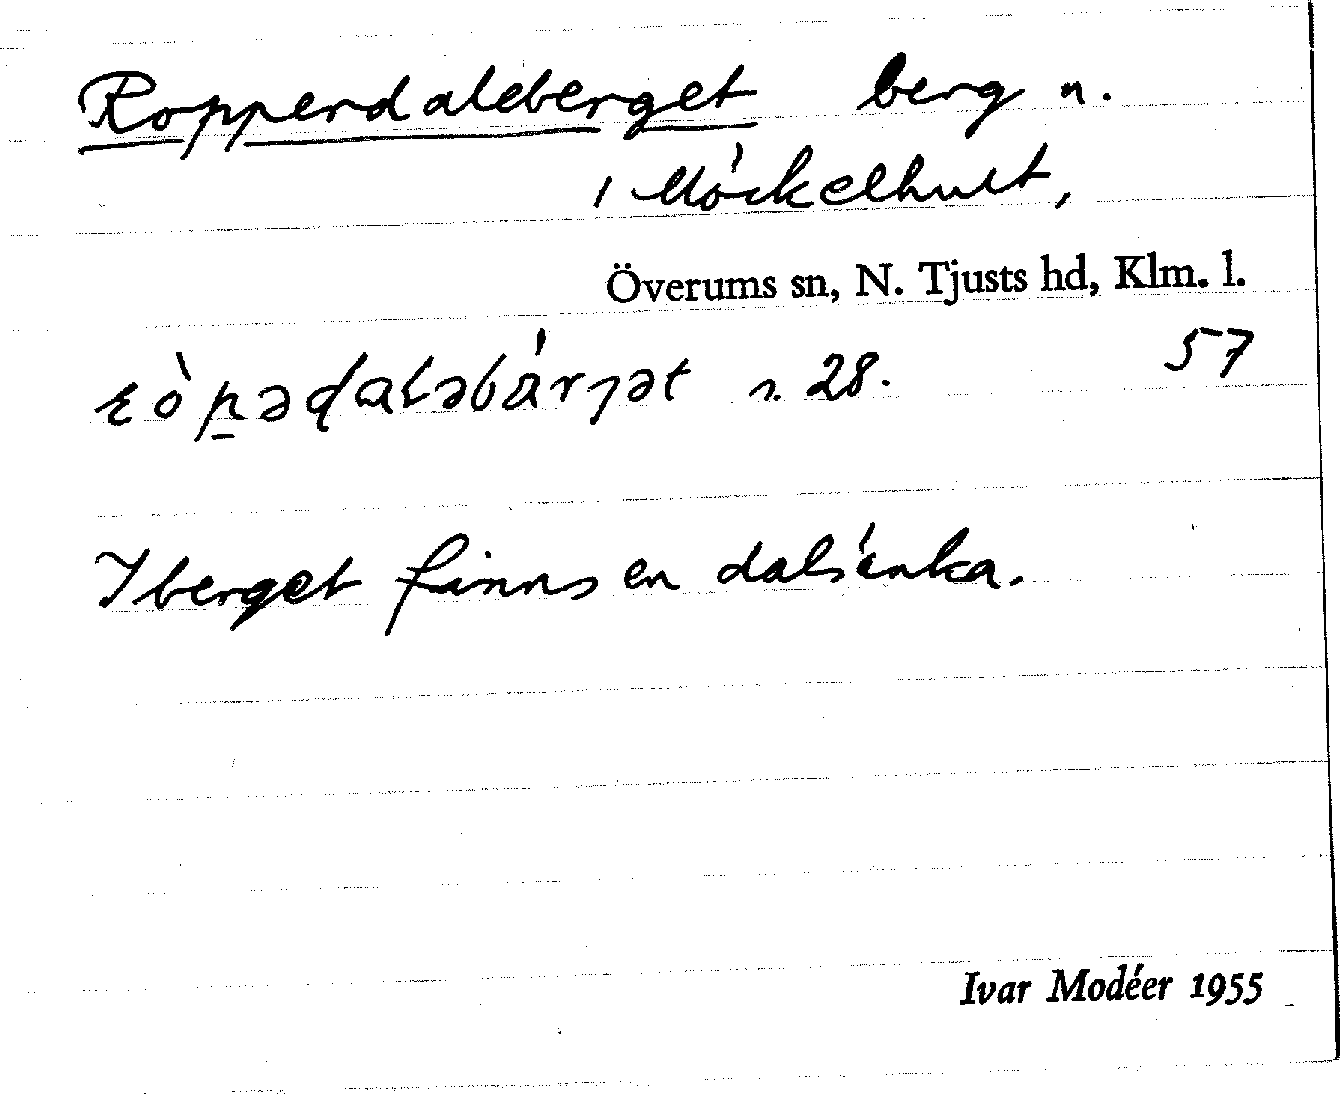 Ropperdaleberget berg n.
i Möckelhult,
Överums sn, N. Tjusts hd, Klm. l.
57
s. 28.
I berget finns en dalsänka.
Ivar Modéer 1955